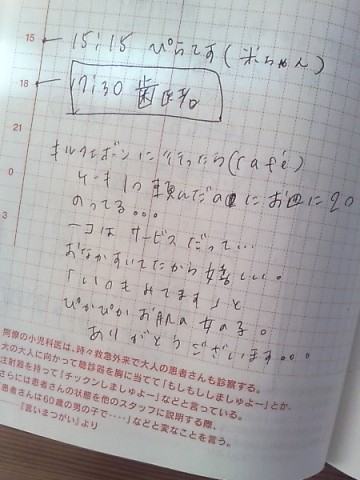 15 15:15 ぴらてす(米ちゃん)
18 17:30 歯医者
21
キルフェボンに行ったら(café)
0 ケーキ1つ頼んだのにお皿に2コ
のってる。。。
3 一コはサービスだって…
おなかすいてたから嬉しい。
「いつもみてます」と
ぴかぴかお肌の女の子。
ありがとうございます。。。
同僚の小児科医は、時々救急外来で大人の患者さんも診察する。
大の大人に向かって聴診器を胸に当てて「もしもししましょよー」とか、
注射器を持って「チックンしましゅよー」などと言っている。
さらには患者さんの状態を他のスタッフに説明する際、
「患者さんは60歳の男の子で‥‥」などと変なことを言う。
『言いまつがい』より